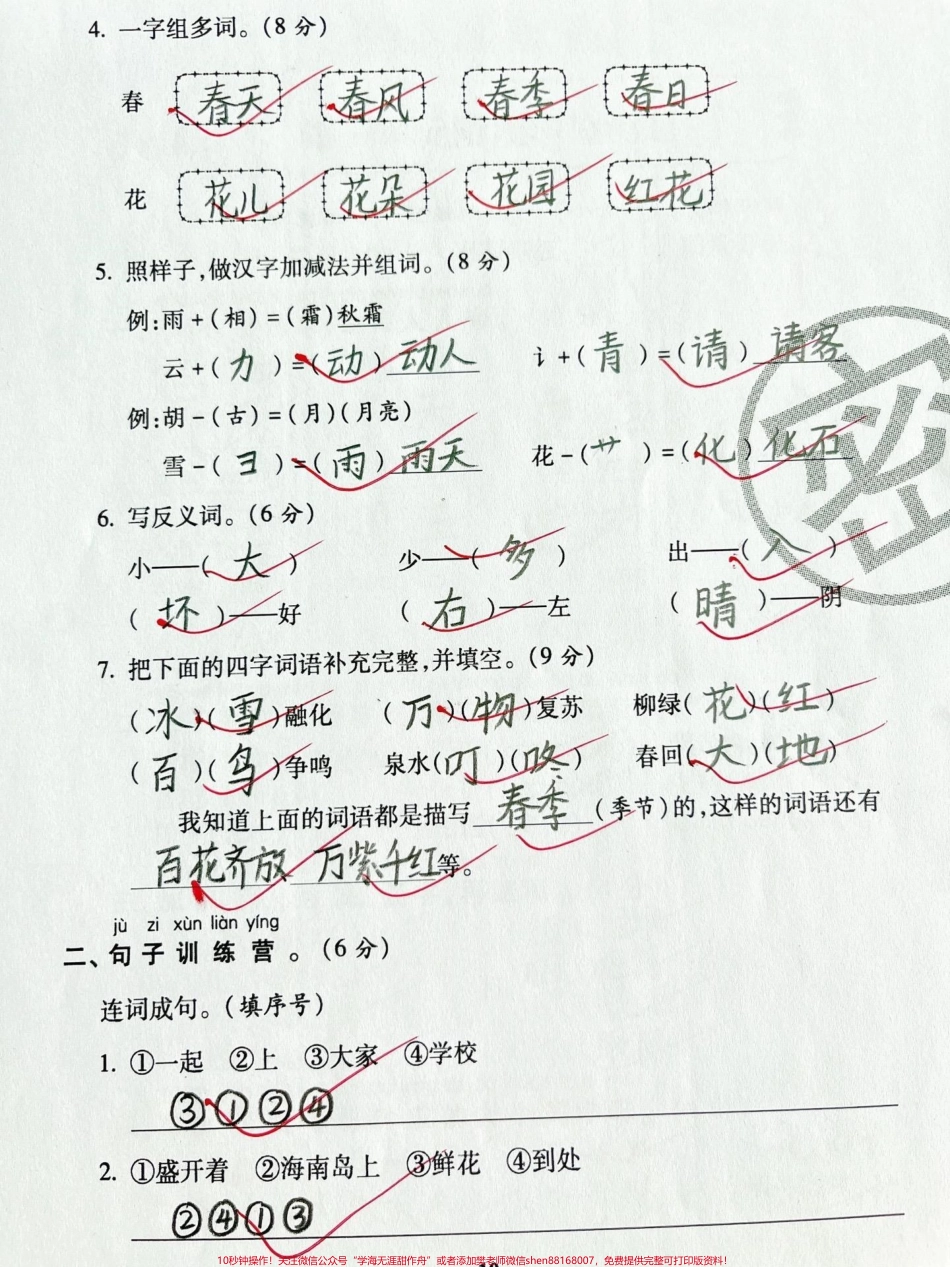 4. 一字组多词。(8分)
春 春天 春风 春季 春日
花 花儿 花朵 花园 红花
5. 照样子,做汉字加减法并组词。(8分)
例:雨+(相)=(霜)秋霜
云+(力)=(动)动人 讠+(青)=(请)请客
例:胡-(古)=(月)(月亮)
雪-(彐)=(雨)雨天 花-(艹)=(化)化石
密
6. 写反义词。(6分)
小——(大) 少——(多) 出——(入)
(坏)——好 (右)——左 (晴)——阴
7. 把下面的四字词语补充完整,并填空。(9分)
(冰)(雪)融化 (万)(物)复苏 柳绿(花)(红)
(百)(鸟)争鸣 泉水(叮)(咚) 春回(大)(地)
我知道上面的词语都是描写 春季 (季节)的,这样的词语还有
百花齐放 万紫千红等。
jù zi xùn liàn yíng
二、句子训练营。(6分)
连词成句。(填序号)
1. ①一起 ②上 ③大家 ④学校
③①②④
2. ①盛开着 ②海南岛上 ③鲜花 ④到处
②④①③
10秒钟操作!关注微信公众号“学海无涯甜作舟”或者添加樊老师微信shen88168007,免费提供完整可打印版资料!